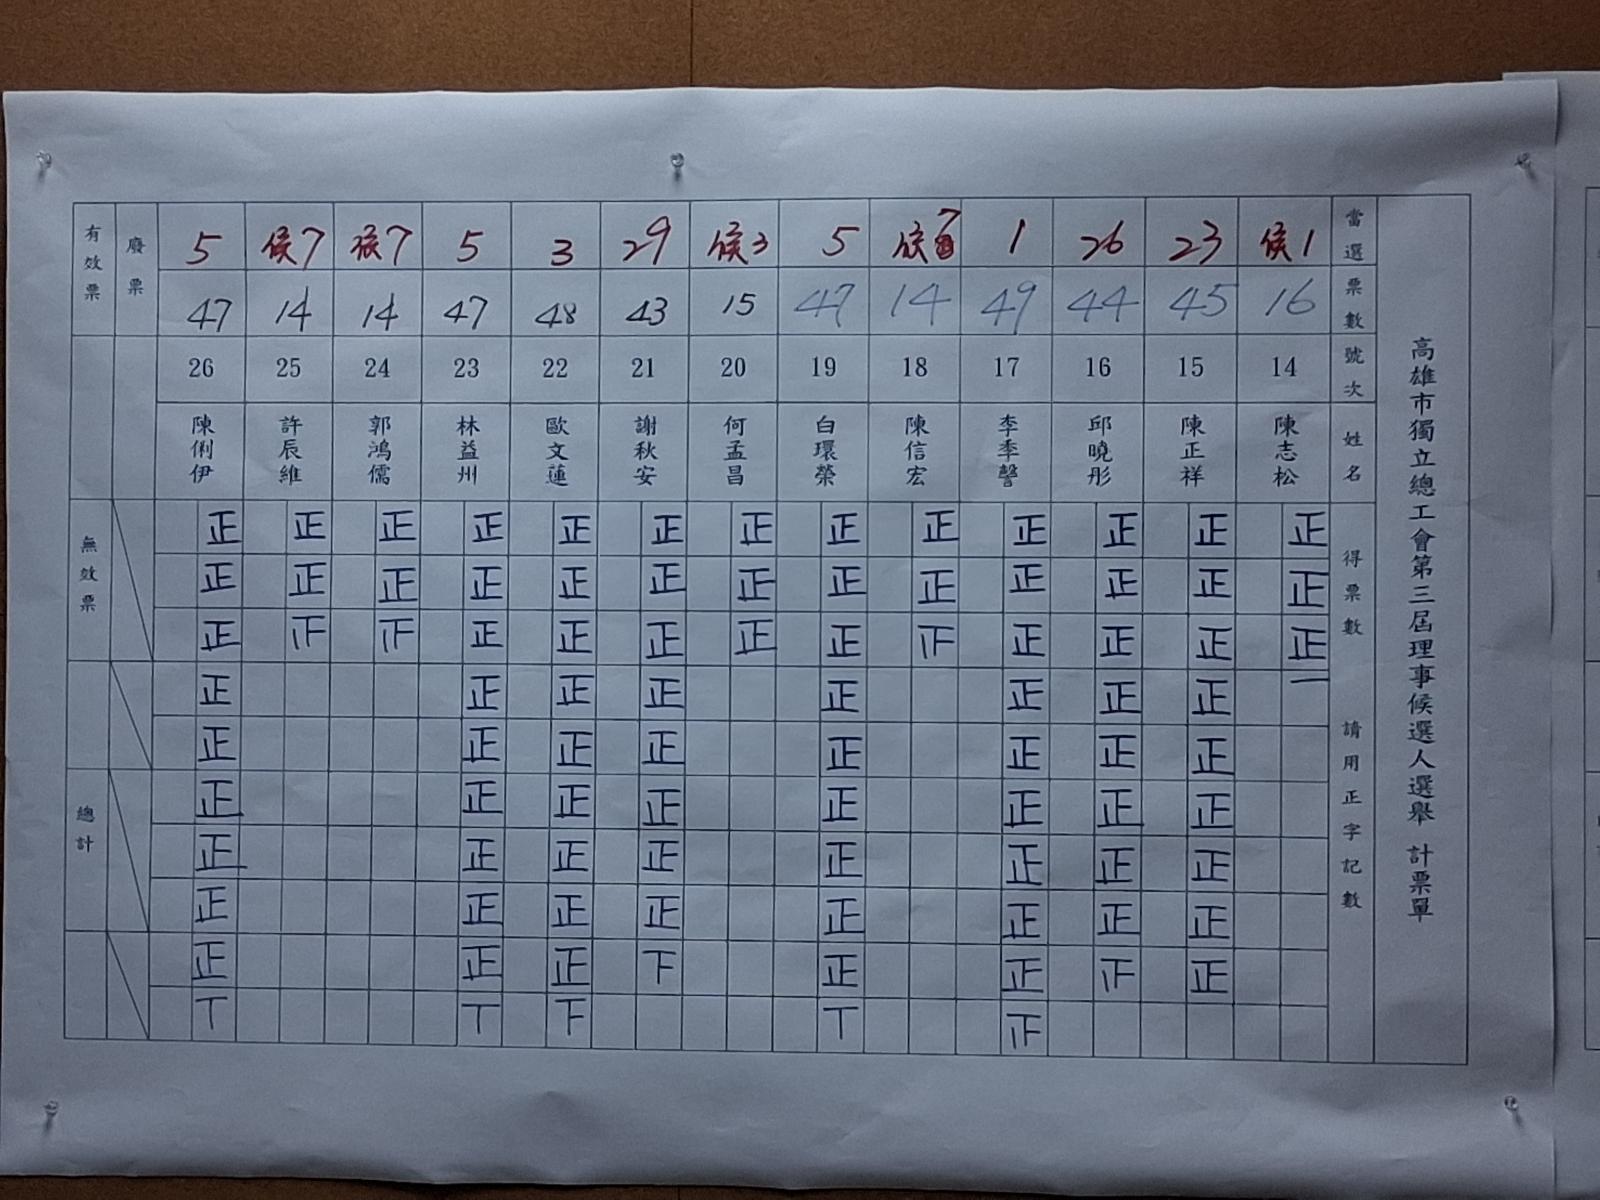 高雄市獨立總工會第三屆理事候選人選舉 計票單
當選 侯1 23 26 1 侯7 5 侯3 29 3 5 候7 侯7 5
票數 16 45 44 49 14 47 15 43 48 47 14 14 47
號次 14 15 16 17 18 19 20 21 22 23 24 25 26
姓名 陳志松 陳正祥 邱曉彤 李季謦 陳信宏 白環榮 何孟昌 謝秋安 歐文蓮 林益州 郭鴻儒 許辰維 陳俐伊
得票數 請用正字記數
正 正 正 正 正 正 正 正 正 正 正 正 正
正 正 正 正 正 正 正 正 正 正 正 正 正
正 正 正 正 正 正 正 正 正
一 正 正 正 正 正 正 正 正
正 正 正 正 正 正 正 正
正 正 正 正 正 正 正 正
正 正 正 正 正 正 正 正
正 正 正 正 正 正 正 正
正 正 正 下 正 正 正
丅 下 丅 丅
廢票
有效票
無效票
總計